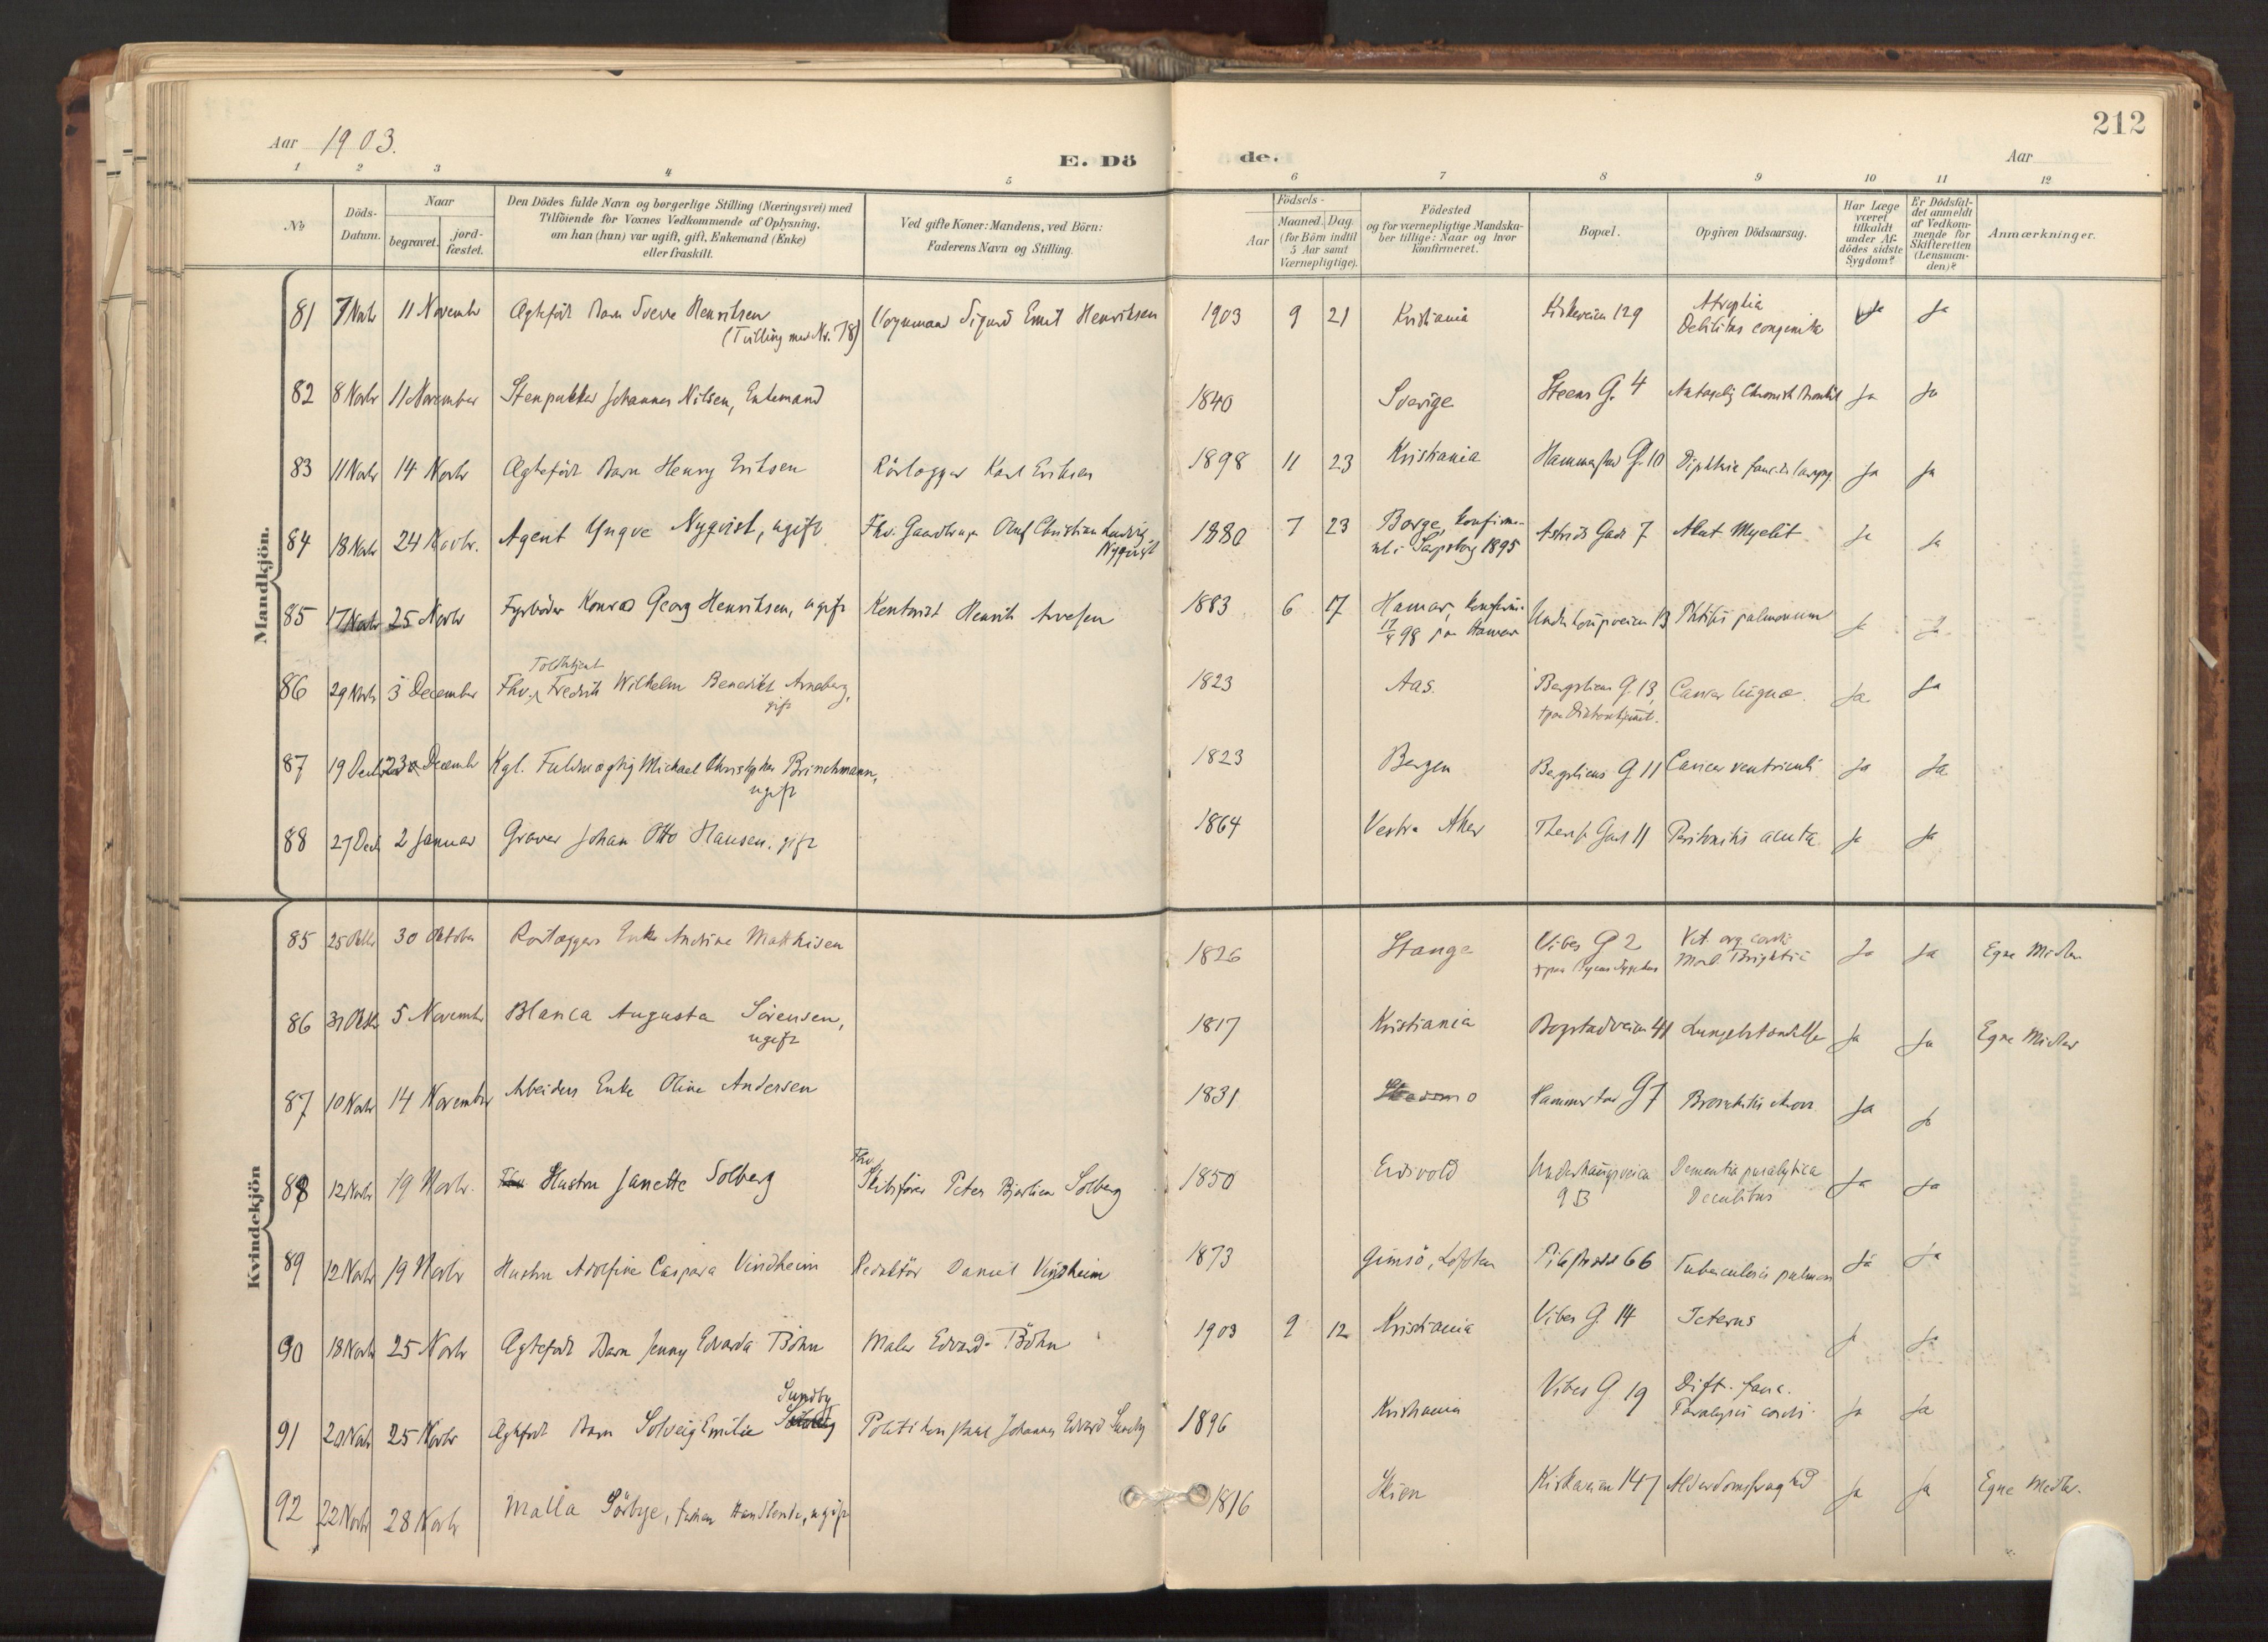 212
Aar 1903.
E. Dö
de.
Aar
1 2 3 4 5 6 7 8 9 10 11 12
No
Döds-
Datum.
Naar
begravet.
jord-
fæstet.
Den Dödes fulde Navn og borgerlige Stilling (Næringsvei) med
Tilföiende for Voxnes Vedkommende af Oplysning,
om han (hun) var ugift, gift, Enkemand (Enke)
eller fraskilt.
Ved gifte Koner: Mandens, ved Börn:
Faderens Navn og Stilling.
Födsels-
Aar
Maaned.
Dag.
(for Börn indtil
5 Aar samt
Værnepligtige).
Födested
og for værnepligtige Mandska-
ber tillige: Naar og hvor
konfirmeret.
Bopæl.
Opgiven Dödsaarsag.
Har Læge
været
tilkaldt
under Af-
dödes sidste
Sygdom?
Er Dödsfal-
det anmeldt
af Vedkom-
mende for
Skifteretten
(Lensman-
den)?
Anmærkninger.
Mandkjön.
81 7 Novbr 11 Novembr Ægtefödt Barn Sverre Henriksen Vognmand Sigurd Emil Henriksen 1903 9 21 Kristiania Kirkeveien 129 Atrophia Ja Ja
(Tvilling med Nr. 78) Debilitas congenita
82 8 Novbr 11 November Stenpukker Johannes Nilsen, Enkemand 1840 Sverige Steens G. 4 Antagelig Chronisk Bronkit Ja Ja
83 11 Novbr 14 Novbr Ægtefödt Barn Henry Eriksen Rörlægger Karl Eriksen 1898 11 23 Kristiania Hammerstad G. 10 Diphterie Ja Ja
84 18 Novbr 24 Novbr. Agent Yngve Nyqvist, ugift Fhv. Gaardbruger Oluf Christian Ludvig 1880 7 23 Borge, konfirme- Astrids Gade 7 Akut Myelit Ja Ja
Nyqvist ret i Sarpsborg 1895
85 17 Novbr 25 Novbr Fyrböder Konrad Georg Henriksen, ugift Kontorist Henrik Arvesen 1883 6 17 Hamar, konfirm. Underhaugsveien 13 Phtisis pulmonum Ja Ja
98 paa Hamar
Toldbetjent
86 29 Novbr 5 December Fhv. Fredrik Wilhelm Benedikt Arneberg, 1823 Aas. Bergslien G. 13, Cancer linguæ. Ja Ja
gift †paa Diakonhjemmet.
87 19 Decbr 23 Decembr Kgl. Fuldmægtig Michael Christopher Brinchmann, 1823 Bergen Bergsliens G 11 Cancer ventriculi Ja Ja
ugift
88 27 Decb 2 Januar Graver Johan Otto Hansen, gift 1864 Vestre Aker Theres. Gade 11 Peritonitis acuta Ja Ja
Kvindekjön
85 25 Oktbr 30 Oktober Rörlæggers Enke Andrine Mathisen 1826 Stange Vibes G 2 Vit. org. cordis Ja Ja Egne Midler
Morb. Brightii
86 31 Oktbr 5 Novembr Blanca Augusta Sörensen, 1817 Kristiania Bogstadveien 41 Lungebetændelse Ja Ja Egne Midler
ugift
87 10 Novbr 14 November Arbeiders Enke Oline Andersen 1831 Hammerstad G 7 Bronchitis chron Ja Ja
Fhv.
88 12 Novbr 19 Novbr. Hustru Janette Solberg Skibsförer Peter Bjerlien Solberg 1850 Eidsvold Underhaugsveien Dementia paralytica Ja Ja
9 B Decubitus
89 12 Novbr 19 Novbr Hustru Adolfine Caspara Vindheim Redaktör Daniel Vindheim 1873 Gimsö, Lofoten Pilestrædet 66 Tuberculosis pulmon Ja Ja
90 18 Novbr 25 Novbr Ægtefödt Barn Jenny Edvarda Böhn Maler Edvard Böhn 1903 9 12 Kristiania Vibes G. 14 Icterus Ja Ja
Sundby
91 20 Novbr 25 Novbr Ægtefödt Barn Solveig Emilie Politikonstabel Johannes Edvard Sundby 1896 Kristiania Vibes G 19 Dift. fauc. Ja Ja
Paralysis cordis
92 22 Novbr 28 Novbr Malla Sörbye, forhen Handlende, ugift 1816 Skien Kirkeveien 147 Alderdomssvaghed Ja Ja Egne Midler.